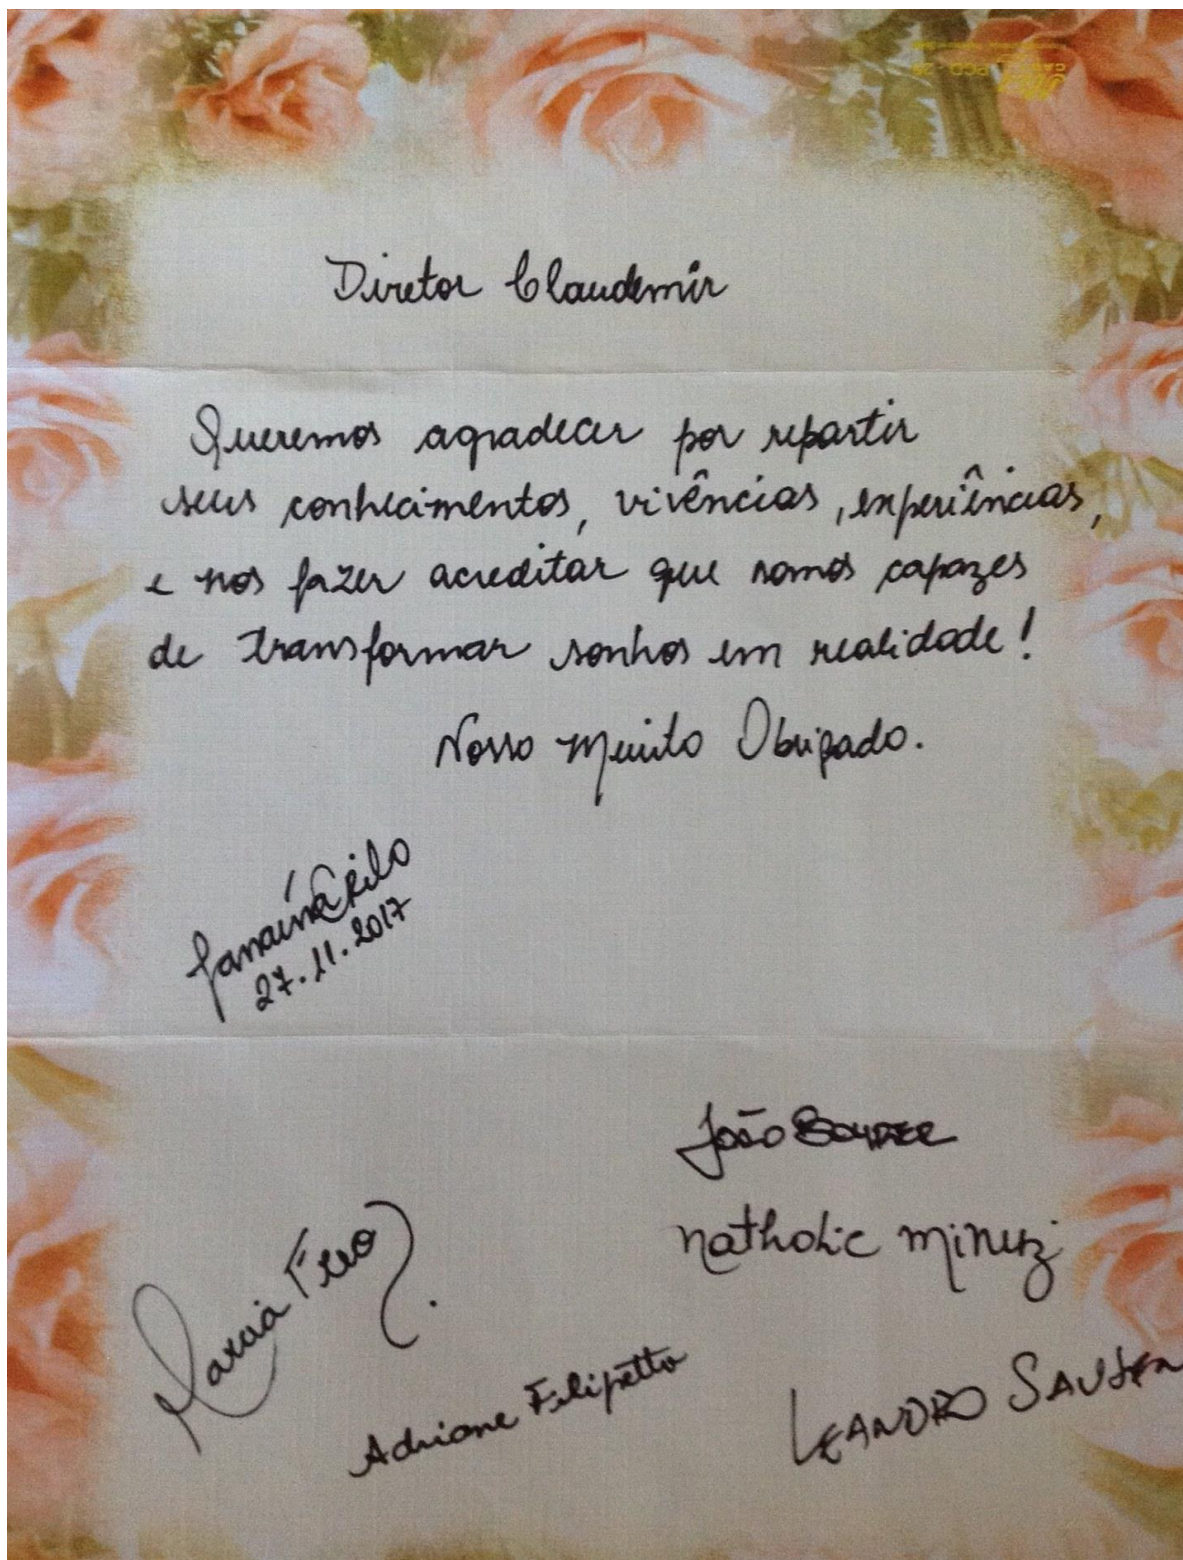 Diretor Claudemir
Queremos agradecer por repartir
seus conhecimentos, vivências, experiências,
e nos fazer acreditar que somos capazes
de transformar sonhos em realidade!
Nosso Muito Obrigado.
Janaína
27.11.2017
João
Nathalie Minuzi
Marcia
Adriane Filipetto
LEANDRO